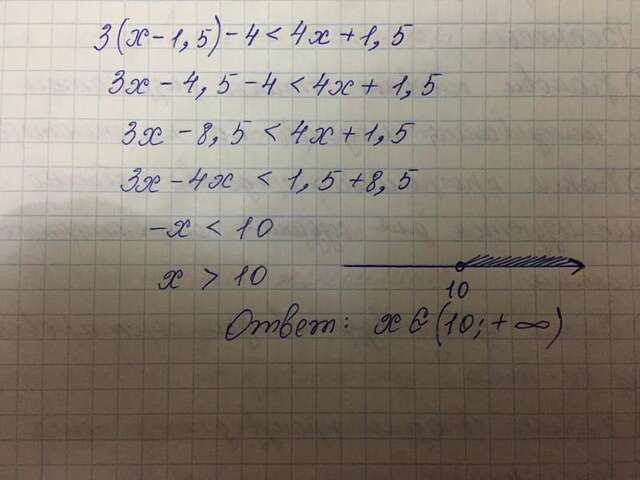 3(x-1,5)-4<4x+1,5
3x-4,5-4<4x+1,5
3x-8,5<4x+1,5
3x-4x<1,5+8,5
-x<10
x>10
10
Ответ: x∈(10;+∞)